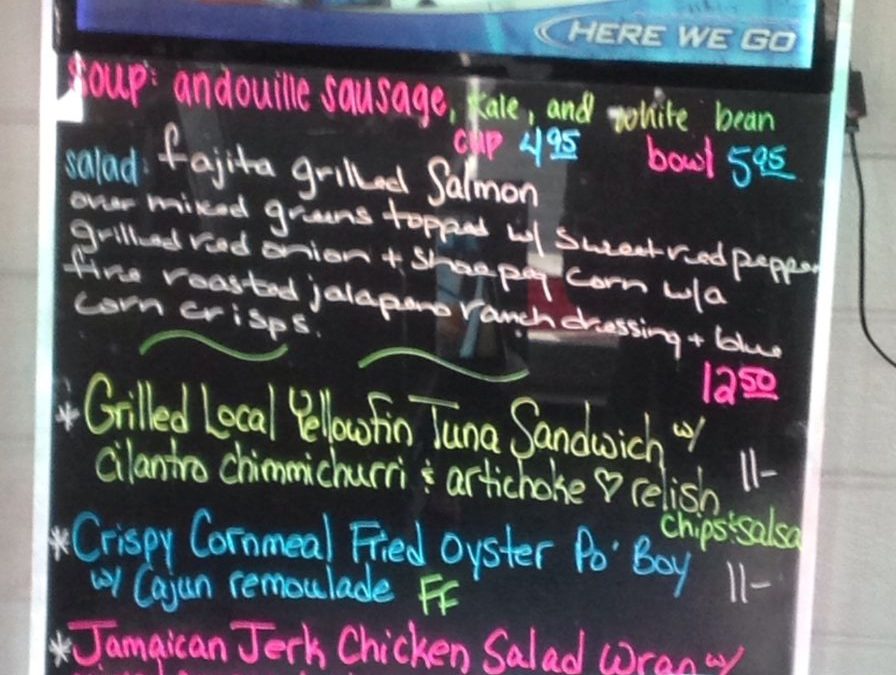 HERE WE GO
Soup: andouille sausage, kale, and white bean
cup 4.95 bowl 5.95
salad: fajita grilled Salmon
over mixed greens topped w/ sweet red pepper
grilled red onion + shoepeg corn w/a
fire roasted jalapeno ranch dressing + blue
corn crisps.
12.50
* Grilled Local Yellowfin Tuna Sandwich w/
cilantro chimmichurri & artichoke ♡ relish 11-
chips & salsa
* Crispy Cornmeal Fried Oyster Po' Boy
w/ Cajun remoulade FF 11-
* Jamaican Jerk Chicken Salad Wrap w/